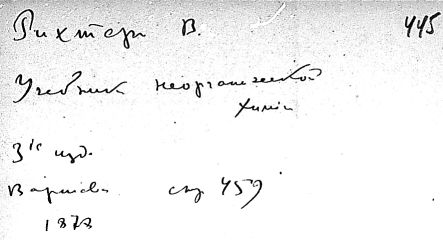 Рихтер В. 445
Учебник неорганической
химии
3е изд.
Варшава стр 459
1878